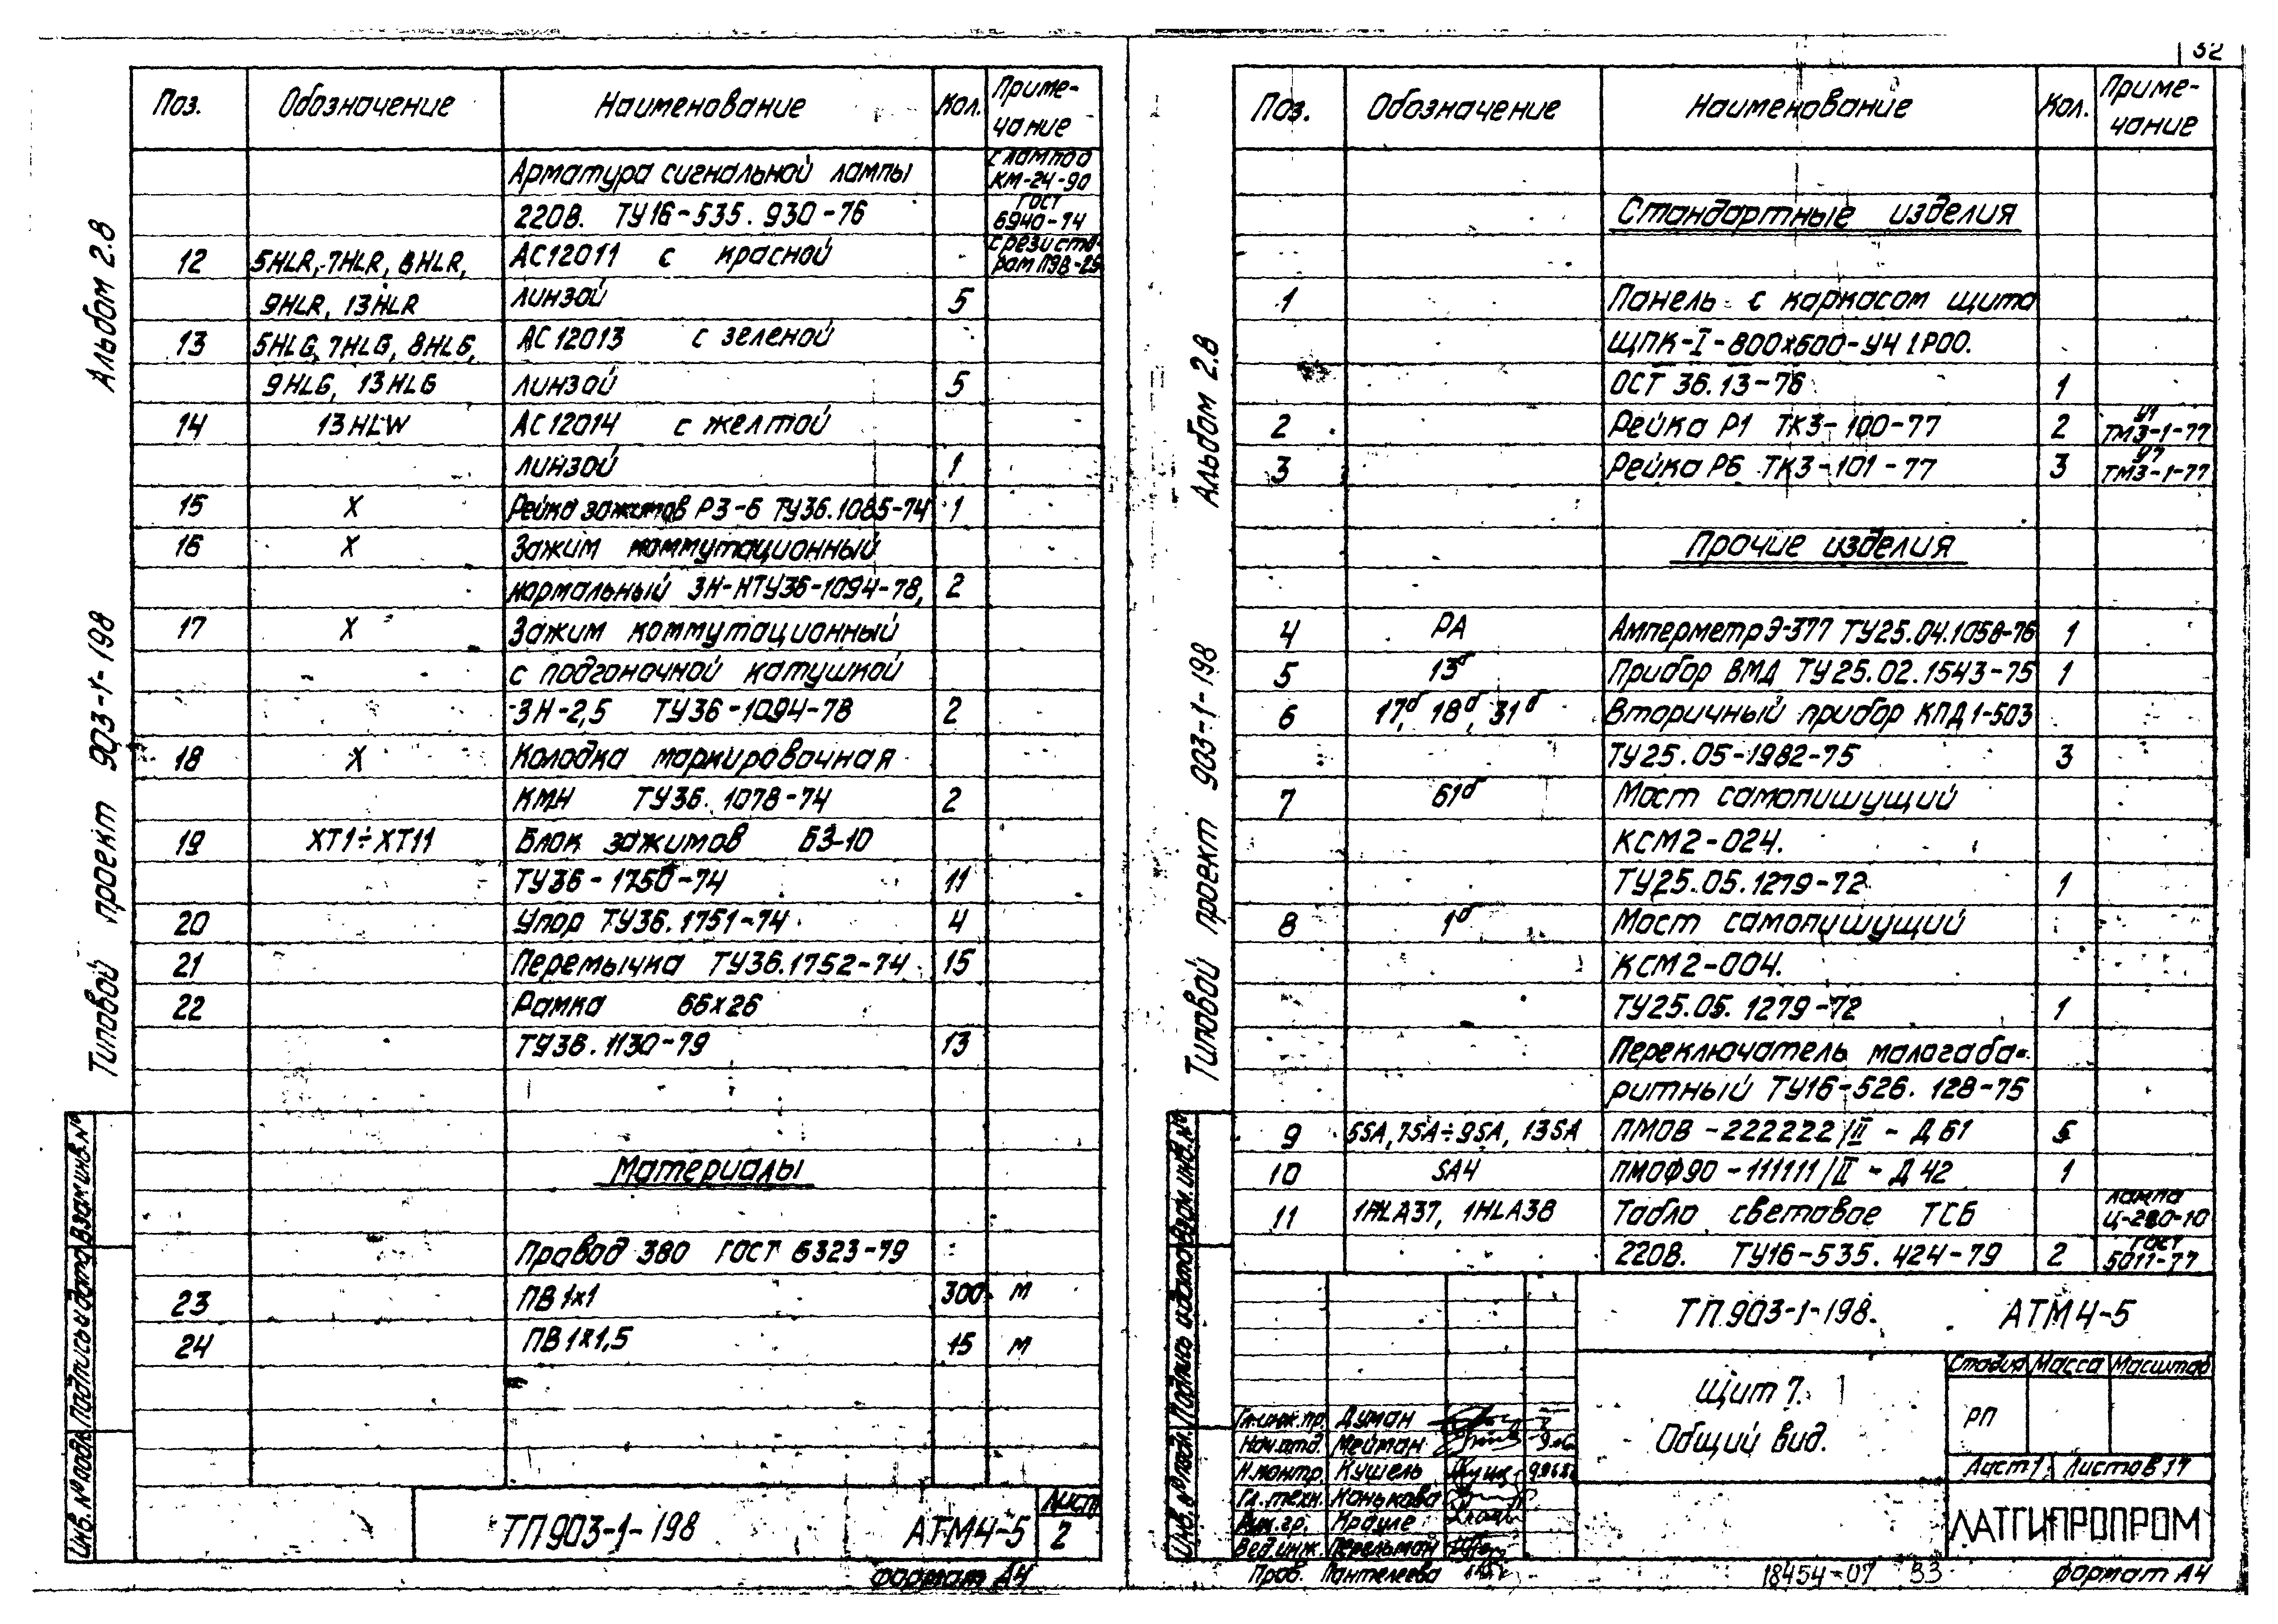 Поз. Обозначение Наименование Кол. Приме-
чание
Арматура сигнальной лампы с лампой КМ-24-90
220В. ТУ16-535.930-76 ГОСТ 6940-74
12 5HLR, 7HLR, 8HLR, АС12011 с красной с резисто-
ром ПЭВ-25
9HLR, 13HLR линзой 5
13 5HLG, 7HLG, 8HLG, АС12013 с зеленой
9HLG, 13HLG линзой 5
14 13HLW АС12014 с желтой
линзой 1
15 X Рейка зажимов РЗ-6 ТУ36.1085-74 1
16 X Зажим коммутационный
нормальный ЗН-НТУ36-1094-78, 2
17 X Зажим коммутационный
с подгоночной катушкой
ЗН-2,5 ТУ36-1094-78 2
18 X Колодка маркировочная
КМН ТУ36.1078-74 2
19 XT1÷XT11 Блок зажимов БЗ-10
ТУ36-1750-74 11
20 Упор ТУ36.1751-74 4
21 Перемычка ТУ36.1752-74 15
22 Рамка 66x26
ТУ36.1130-79 13
Материалы
Провод 380 ГОСТ 6323-79
23 ПВ 1x1 300 м
24 ПВ 1x1,5 15 м
ТП 903-1-198 АТМ4-5 Лист
2
Формат А4
Альбом 2.8
Типовой проект 903-1-198
Инв. № подл. Подпись и дата Взам.инв.№
32
Поз. Обозначение Наименование Кол. Приме-
чание
Стандартные изделия
1 Панель с каркасом щита
ЩПК-I-800x600-У4 IP00.
ОСТ 36.13-76 1
2 Рейка Р1 ТК3-100-77 2 У1 ТМ3-1-77
3 Рейка Р6 ТК3-101-77 3 ТМ3-1-77
Прочие изделия
4 PA Амперметр Э-377 ТУ25.04.1058-76 1
5 13б Прибор ВМД ТУ25.02.1543-75 1
6 17б, 18б, 31б Вторичный прибор КПД1-503
ТУ25.05-1982-75 3
7 61б Мост самопишущий
КСМ2-024.
ТУ25.05.1279-72 1
8 1б Мост самопишущий
КСМ2-004.
ТУ25.05.1279-72 1
Переключатель малогаба-
ритный ТУ16-526.128-75
9 5SA, 7SA÷9SA, 13SA ПМОВ-222222/II-Д61 5
10 SA4 ПМОФ90-111111/II-Д42 1
11 1HLA37, 1HLA38 Табло световое ТСБ лампа Ц-220-10
220В. ТУ16-535.424-79 2 ГОСТ 5011-77
ТП 903-1-198. АТМ4-5
Щит 7.
Общий вид.
Стадия Масса Масштаб
РП
Лист 1 Листов 17
ЛАТГИПРОПРОМ
Гл.инж.пр. Думан
Нач.отд. Мейтан
Н.контр. Кушель
Гл.техн. Конькова
Рук.гр. Крауле
Вед.инж. Перельман
Пров. Пантелеева
18454-07 33 Формат А4
Альбом 2.8
Типовой проект 903-1-198
Инв. № подл. Подпись и дата Взам.инв.№